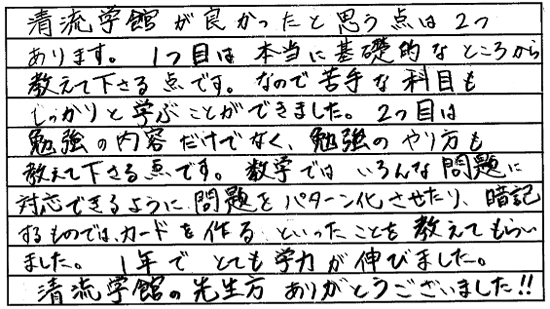 清流学館が良かったと思う点は2つ
あります。1つ目は本当に基礎的なところから
教えて下さる点です。なので苦手な科目も
しっかりと学ぶことができました。2つ目は
勉強の内容だけでなく、勉強のやり方も
教えて下さる点です。数学ではいろんな問題に
対応できるように問題をパターン化させたり、暗記
するものでは、カードを作るといったことを教えてもらい
ました。1年でとても学力が伸びました。
清流学館の先生方ありがとうございました!!